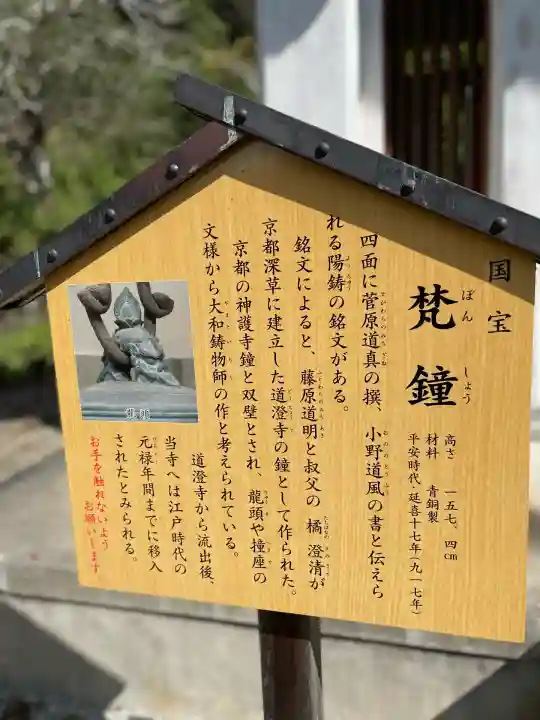 国宝
梵鐘
ぼんしょう
高さ 一五七、四cm
材料 青銅製
平安時代・延喜十七年(九一七年)
四面に菅原道真の撰、小野道風の書と伝えら
れる陽鋳の銘文がある。
銘文によると、藤原道明と叔父の橘澄清が
京都深草に建立した道澄寺の鐘として作られた。
京都の神護寺鐘と双璧とされ、龍頭や撞座の
文様から大和鋳物師の作と考えられている。
道澄寺から流出後、
当寺へは江戸時代の
元禄年間までに移入
されたとみられる。
お手を触れないよう
お願いします